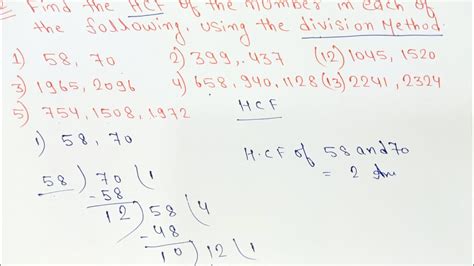 2 Find the HCF of the number in each of
the following, using the division Method.
1) 58, 70 2) 399, 437 (12) 1045, 1520
3) 1965, 2096 4) 658, 940, 1128 (13) 2241, 2324
5) 754, 1508, 1972 HCF
1) 58, 70
H.C.F of 58 and 70
= 2 Ans
58) 70 (1
-58
12) 58 (4
-48
10) 12 (1